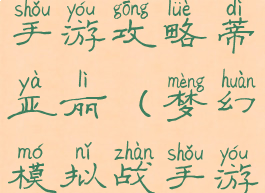 shǒu yóu gōng lüè dì
手游攻略蒂
yà lì mèng huàn
亚丽（梦幻
mó nǐ zhàn shǒu yóu
模拟战手游